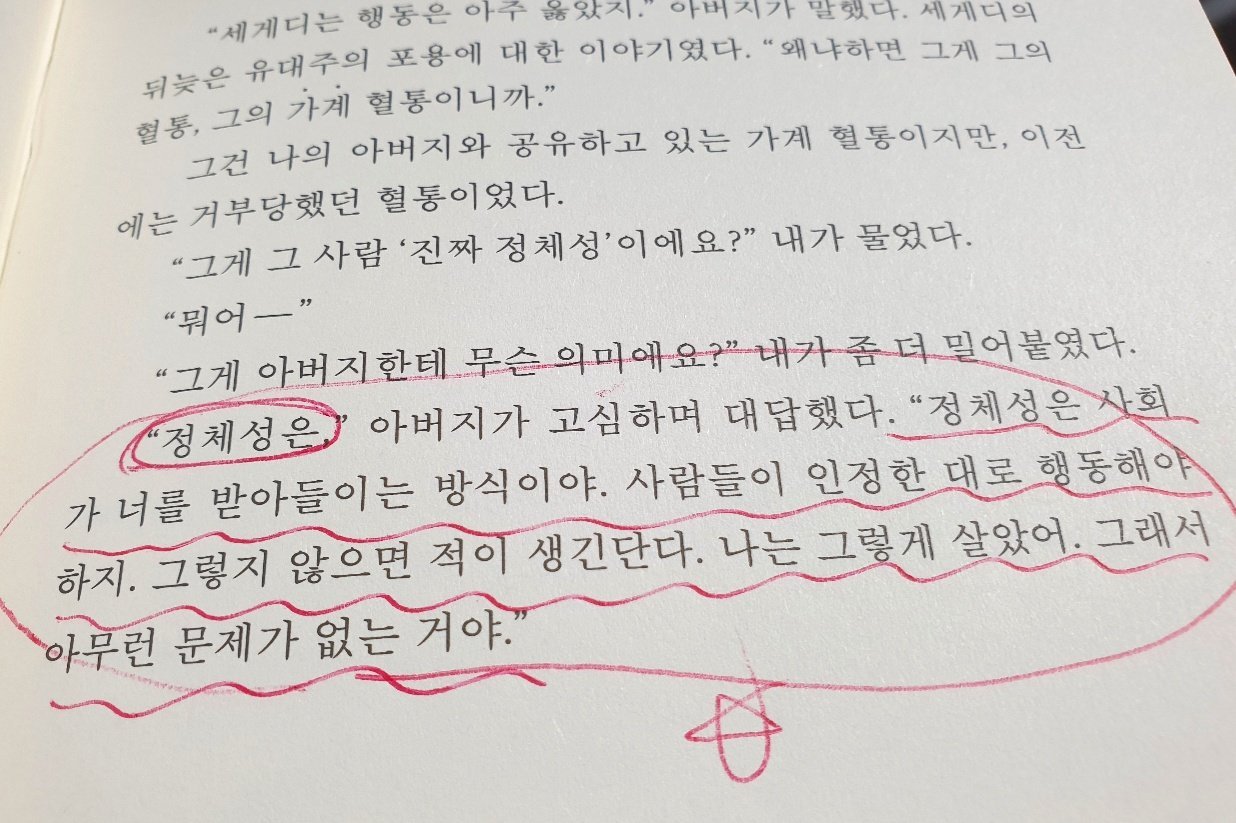 “세게디는 행동은 아주 옳았지.” 아버지가 말했다. 세게디의
뒤늦은 유대주의 포용에 대한 이야기였다. “왜냐하면 그게 그의
혈통, 그의 가계 혈통이니까.”
그건 나의 아버지와 공유하고 있는 가계 혈통이지만, 이전
에는 거부당했던 혈통이었다.
“그게 그 사람 ‘진짜 정체성’이에요?” 내가 물었다.
“뭐어—”
“그게 아버지한테 무슨 의미예요?” 내가 좀 더 밀어붙였다.
“정체성은,” 아버지가 고심하며 대답했다. “정체성은 사회
가 너를 받아들이는 방식이야. 사람들이 인정한 대로 행동해야
하지. 그렇지 않으면 적이 생긴단다. 나는 그렇게 살았어. 그래서
아무런 문제가 없는 거야.”